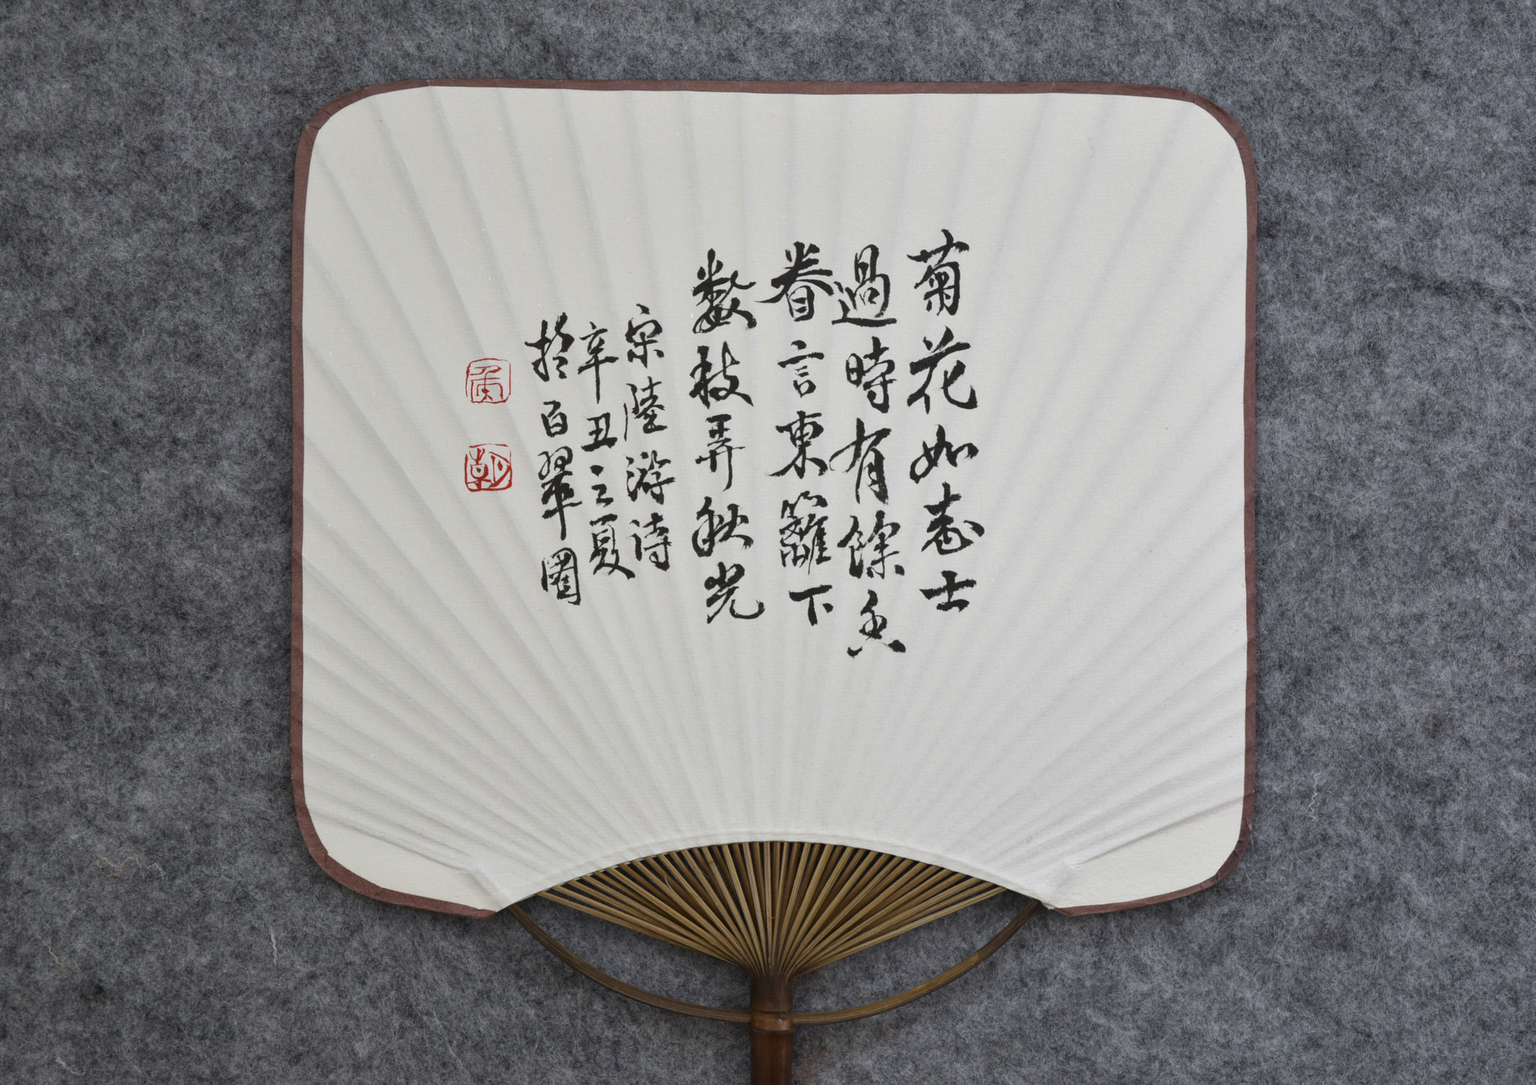 菊花如志士
過時有餘香
眷言東籬下
數枝弄秋光
宋陸游诗
辛丑之夏
於百翠園